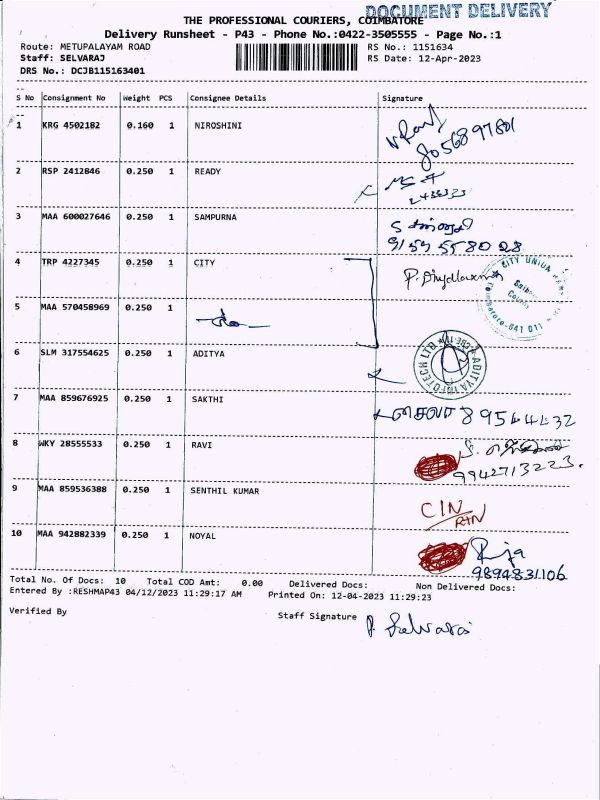 DOCUMENT DELIVERY
THE PROFESSIONAL COURIERS, COIMBATORE
Delivery Runsheet - P43 - Phone No.:0422-3505555 - Page No.:1
Route: METUPALAYAM ROAD RS No.: 1151634
Staff: SELVARAJ RS Date: 12-Apr-2023
DRS No.: DCJB115163401
S No Consignment No Weight PCS Consignee Details Signature
1 KRG 4502182 0.160 1 NIROSHINI
8056897801
2 RSP 2412846 0.250 1 READY
3 MAA 600027646 0.250 1 SAMPURNA
9159558028
4 TRP 4227345 0.250 1 CITY
CITY UNION
5 MAA 570458969 0.250 1
Coimbatore-641 011
6 SLM 317554625 0.250 1 ADITYA
ADITYA INFOTECH LTD
7 MAA 859676925 0.250 1 SAKTHI
8 WKY 28555533 0.250 1 RAVI
9942713223.
9 MAA 859536388 0.250 1 SENTHIL KUMAR
CIN/
10 MAA 942882339 0.250 1 NOYAL
Raja
9894831106
Total No. Of Docs: 10 Total COD Amt: 0.00 Delivered Docs: Non Delivered Docs:
Entered By :RESHMAP43 04/12/2023 11:29:17 AM Printed On: 12-04-2023 11:29:23
Verified By Staff Signature P. Selvaraj